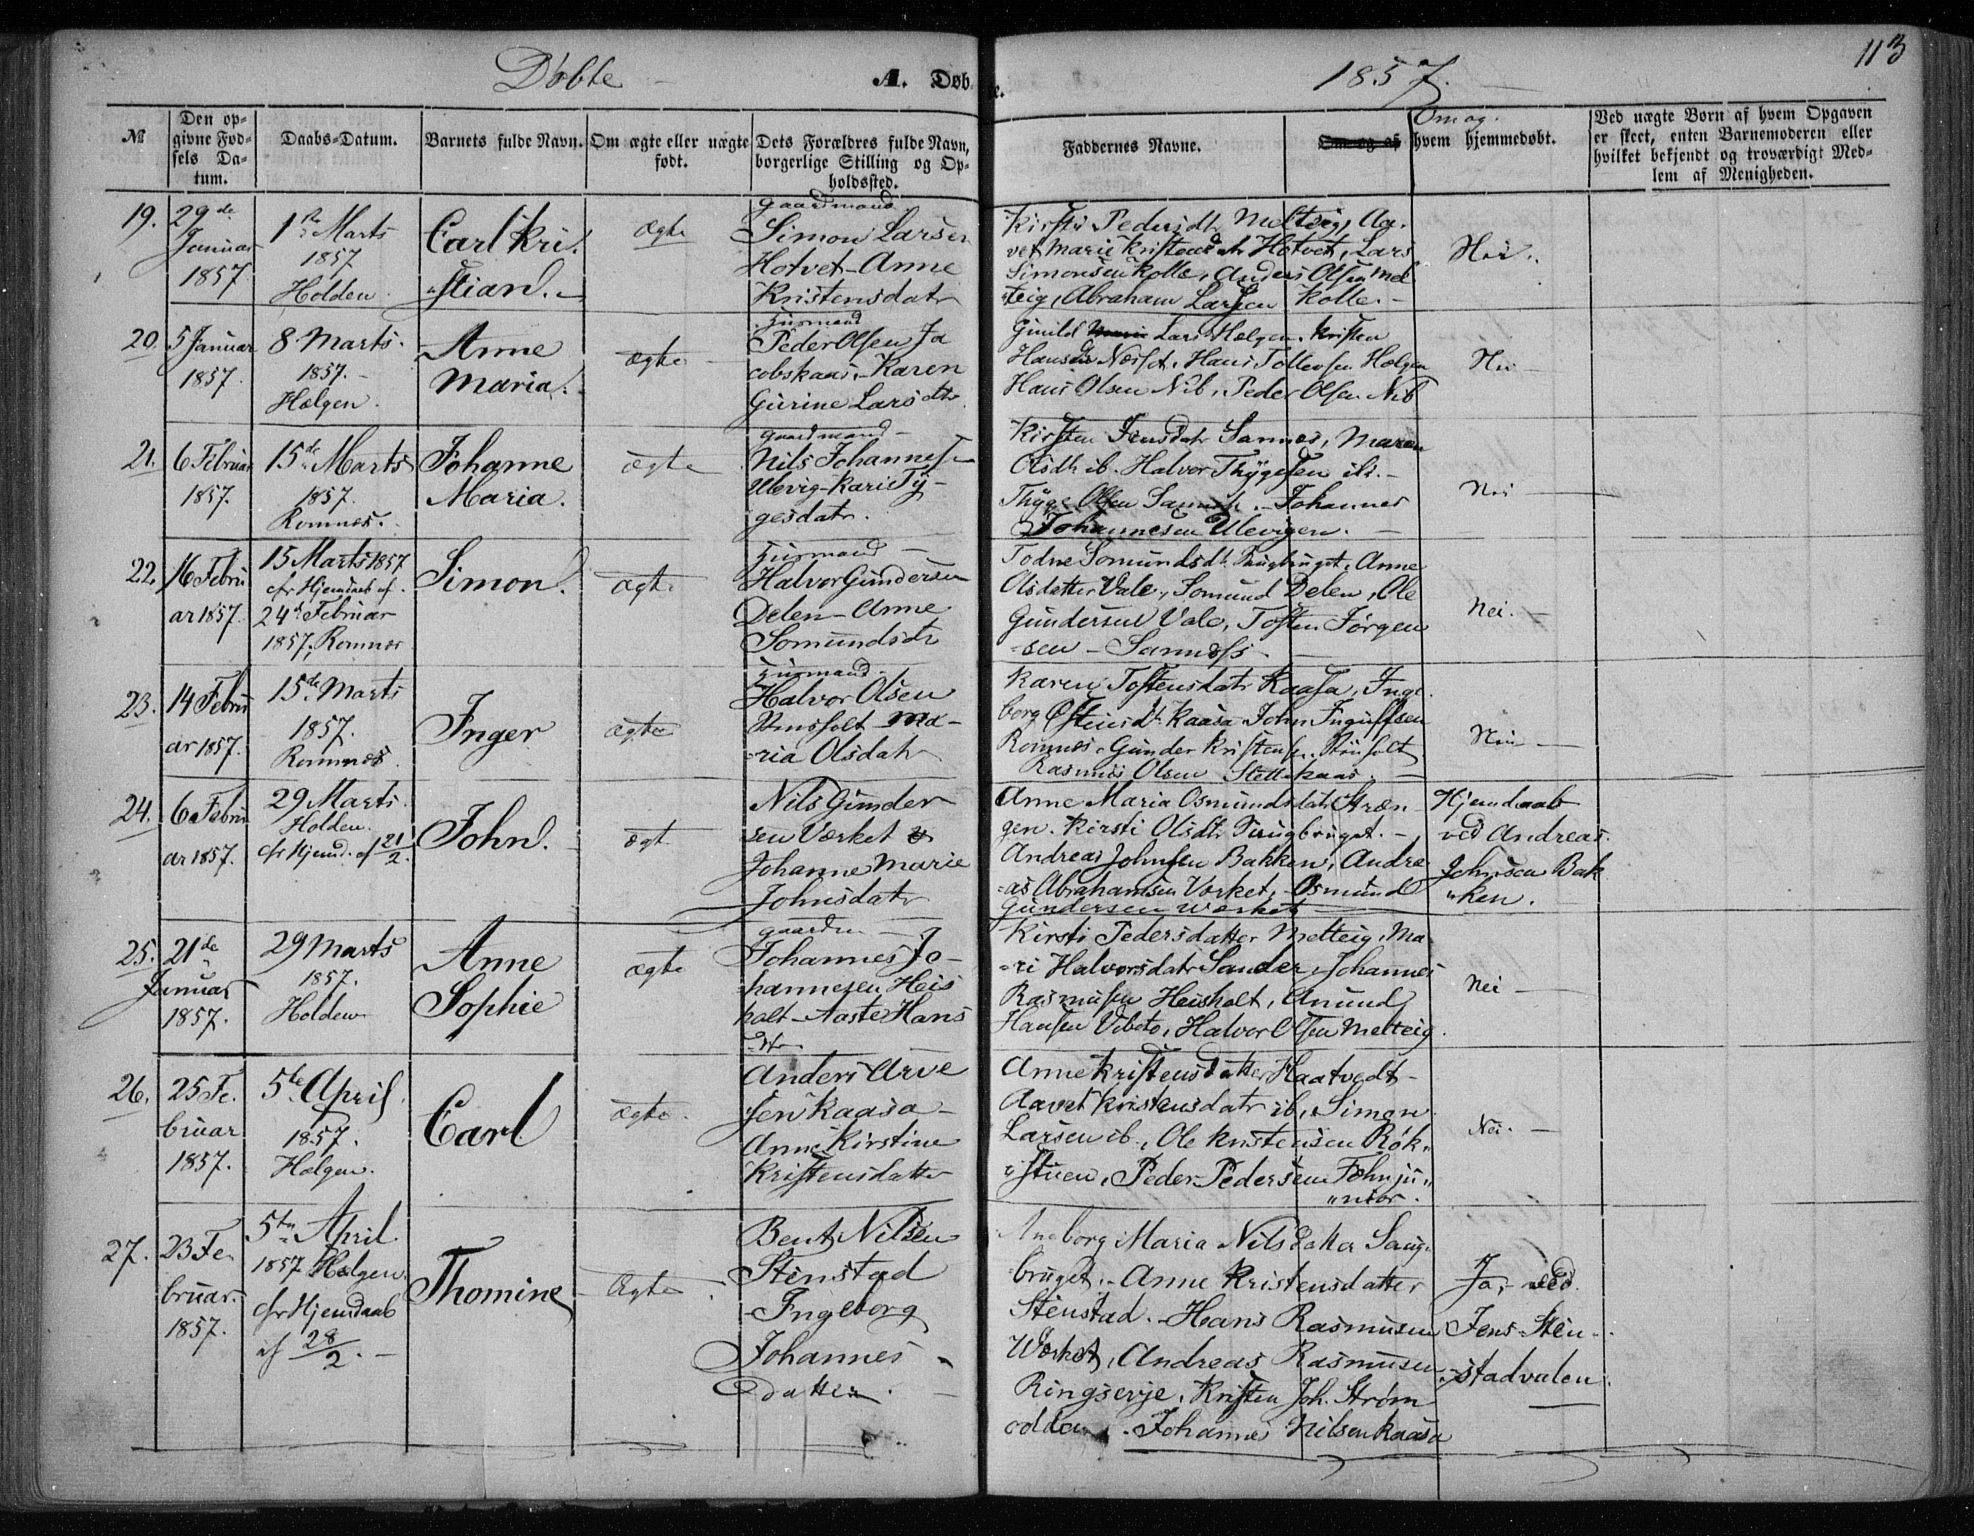 113
Døbte
A. Døb
e.
1857.
№
Den op-
givne Fød-
sels Da-
tum.
Daabs-Datum.
Barnets fulde Navn.
Om ægte eller uægte
født.
Dets Forældres fulde Navn,
borgerlige Stilling og Op-
holdssted.
Faddernes Navne.
Om og af
Om og.
hvem hjemmedøbt.
Ved uægte Børn af hvem Opgaven
er skeet, enten Barnemoderen eller
hvilket bekjendt og troværdigt Med-
lem af Menigheden.
19.
29de
Januar
1857.
1ste Marts
1857
Holden.
Carl Kri-
stian.
ægte
gaardmand
Simon Larsen
Hotvet - Anne
Kristensdatr
Kirsti Pedersdtr Melteig, Aa-
vet Marie Kristensdatr Hotvet, Lars
Simonsen Kolle, Anders Olsen Mel
teig, Abraham Larsen Kolle.
Nei.
20.
5 Januar
1857.
8 Marts.
1857.
Helgen.
Anne
Maria.
ægte
Husmand
Peder Olsen Ja
cobskaas. Karen
Gurine Larsdtr
Gunild Lars Helgen. Kristen
Hansen Næsset. Hans Tollevsen Helgen
Hans Olsen Nib, Peder Olsen Nib
Nei
21.
6 Februar
1857.
15de Marts
1857.
Romnes.
Johanne
Maria.
ægte
gaardmand
Nils Johannesen
Ulevig - Kari Ty-
gesdatr.
Kirsten Jensdatr Sannes, Maren
Olsdtr ib. Halvor Thygesen ib.
Thyge Olsen Sannes. Johannes
Johannesen Ulevigen.
Nei
22.
16 Febru
ar 1857.
15 Marts 1857
cfr Hjemdaab af
24de Februar
1857, Romnes
Simon.
ægte
Husmand
Halvor Gundersen
Delen - Anne
Somundsdtr
Todne Somundsdtr Saugbruget. Anne
Olsdatter Vale, Somund Delen, Ole
Gundersen Vale, Tosten Jørgen
sen - Sannæss
Nei.
23.
14 Febru
ar 1857.
15de Marts
1857.
Romnes.
Inger
ægte
Husmand
Halvor Olsen
Stensholt - Ma-
ria Olsdatr
Karen Tostensdatr Kaasa, Inge-
borg Østensdtr Kaasa John Ingulfsen
Romnes. Gunder Kristensen Stensholt
Rasmus Olsen Stellekaas.
Nei
24.
6 Febru
ar 1857.
29 Marts
Holden.
cfr Hjemd. af 21/2.
John.
ægt
Nils Gunder
sen Værket &
Johanne Marie
Johnsdatr
Anne Maria Osmundsdatr Stræn-
gen. Kirsti Olsdtr Saugbruget.
Andreas Johnsen Bakken, Andre
as Abrahamsen Værket, Osmund
Gundersen Værket
Hjemdaab
ved Andreas
Johnsen Bak
ken.
25.
21de
Januar
1857.
29 Marts
1857.
Holden
Anne
Sophie
ægte
gaardm
Johannes Jo-
hannesen Heis
holt - Aaste Hans
dtr
Kirsti Pedersdatter Melteig, Ma-
ri Halvorsdatr Sander, Johannes
Rasmusen Heisholt, Anund
Hansen Vibeto, Halvor Olsen Melteig.
Nei
26.
25 Fe-
bruar
1857.
5te April
1857.
Helgen.
Carl
ægte.
Anders Arve
sen Kaasa -
Anne Kirstine
Kristensdatter
Anne Kristensdatter Haatvedt -
Aavet Kristensdatr ib, Simon
Larsen ib., Ole Kristensen Røk-
stuen, Peder Pedersen Fehn ju-
nior.
Nei.
27.
23 Fe-
bruar.
1857.
5te April
1857 Helgen.
cfr Hjemdaab
af 28/2.
Thomine
Ægte
Bent Nilsen
Stenstad
Ingeborg
Johannes
datter.
Ingborg Maria Nilsdatter Saug-
bruget. - Anne Kristensdatter
Stenstad. Hans Rasmusen
Værket, Andreas Rasmusen
Ringsevje. Kristen Joh. Strøm
odden. Johannes Nilsen Kaasa
Ja, ved
Jens Sten-
stadvalen.